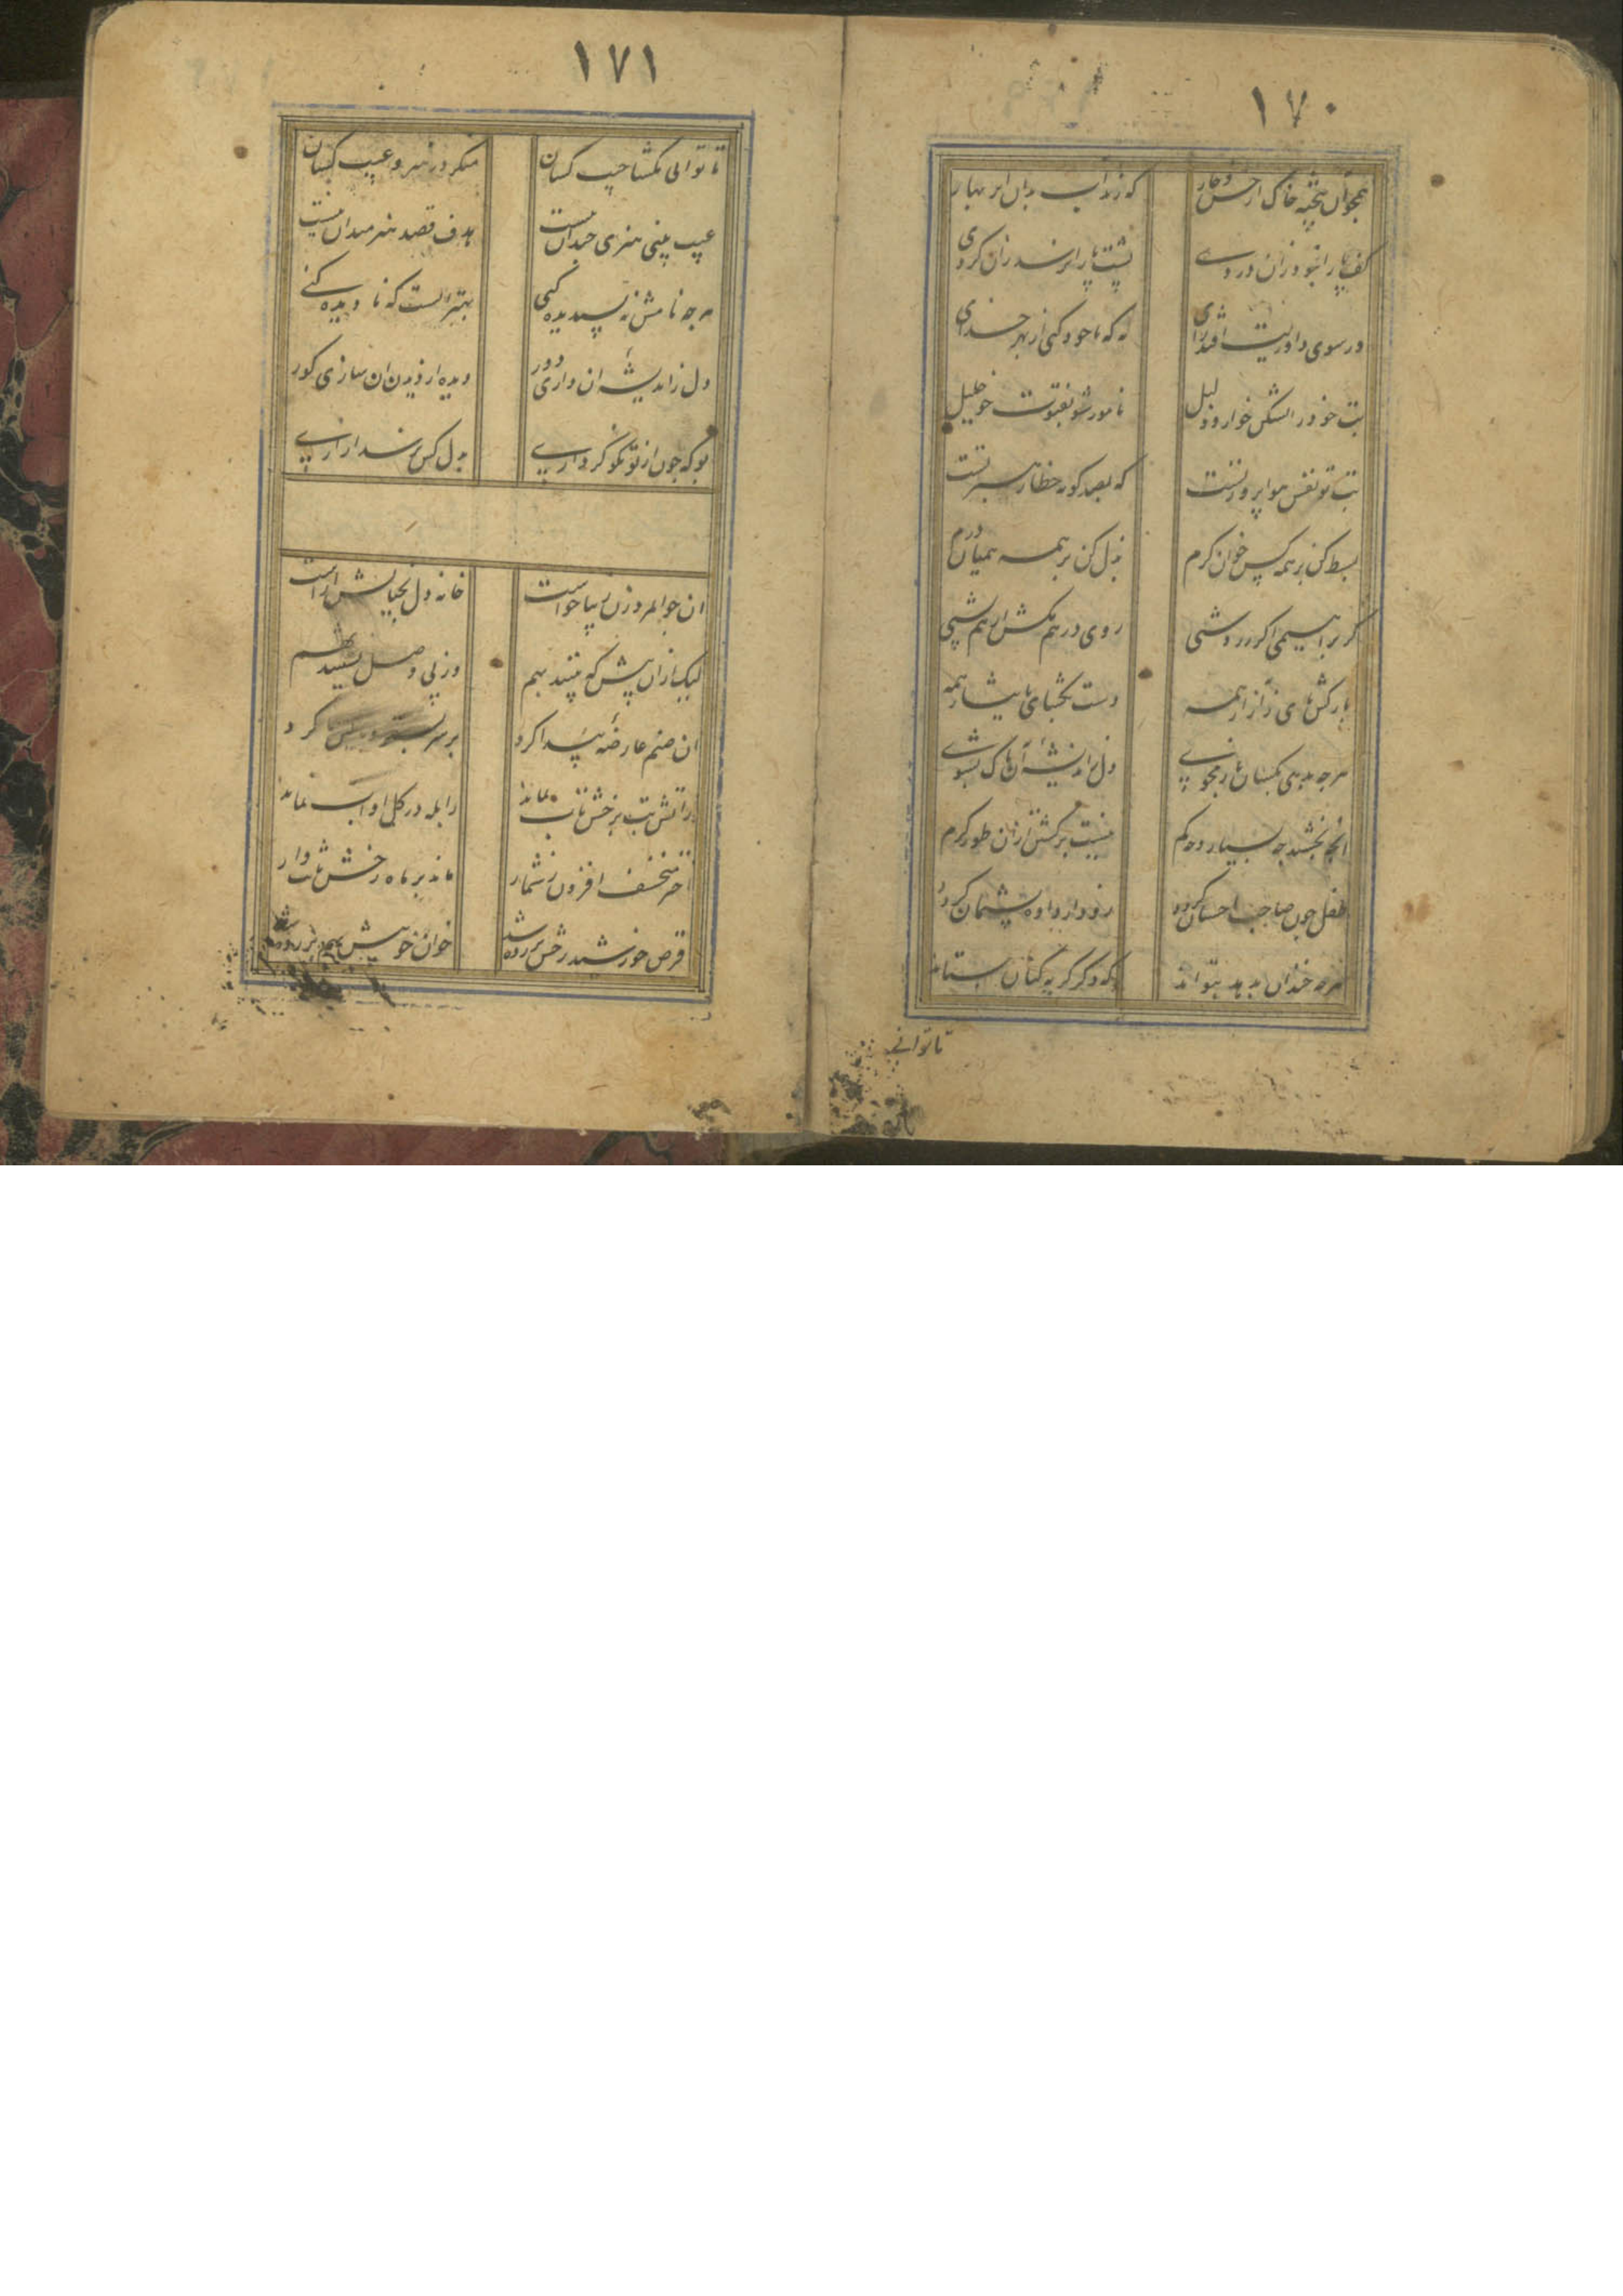 ١٧٠
همچو آن پخته خاک از خس و خار
که زند آب بدان ابر بهار
کف پا را نبود زان دردی
پشت پا را نرسد زان گردی
ور سوی داوریت افتد رای
نه که با خود کنی از بهر خدای
بت خود را بشکن خوار و ذلیل
نامور شو بفتوت چو خلیل
بت تو نفس هوا پرور تست
که بصد گونه خطا رهبر تست
بسط کن بر همه کس خوان کرم
بذل کن بر همه همیان درم
گر براهیمی اگر زردشتی
روی در هم مکش از هم پشتی
باز کش پای ز آزار همه
دست بگشای بایثار همه
هرچه بدهی بکسان باز مجوی
دل ز اندیشه آن پاک بشوی
آنچه بخشند چه بسیار و چه کم
نیست برگشتن از آن طور کرم
طفل چون صاحب احسان گردد
زود از داده پشیمان گردد
هرچه خندان بدهد نتواند
که دگر گریه کنان نستاند
تا توانی
١٧١
تا توانی مگشا جیب کسان
منگر در هنر و عیب کسان
عیب بینی هنری چندان نیست
هدف قصد هنرمندان نیست
هرچه نامش نه پسندیده کنی
بهتر آنست که نادیده کنی
دل ز اندیشه آن داری دور
دیده از دیدن آن سازی کور
بو که چون از تو نکو کرداری
بدل کس نرسد آزاری
آن جوانمرد زن زیبا خواست
خانه دل بخیالش آراست
لیک از آن پیش که بینند بهم
وز پی وصل نشینند بهم
آن صنم عارضه پیدا کرد
بر سر بستر کرد
ز آتش تب برخش تاب نماند
ز آبله در گل او آب نماند
اختر منخسف افزون ز شمار
ماند بر ماه رخش ثابت وار
قرص خورشید رخش بر زده شد
خوان خوبیش بهم بر زده شد